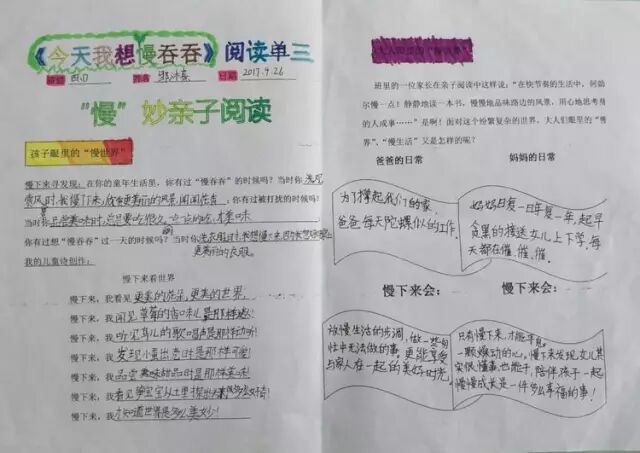 《今天我想慢吞吞》阅读单三
班级 四(1) 姓名 日期 2017.9.26
“慢”妙亲子阅读
孩子眼里的“慢世界”
慢下来寻发现：在你的童年生活里，你有过“慢吞吞”的时候吗？当时你
我慢下来，
你有过被打扰的时候吗？
当时你
你有过想“慢吞吞”过一天的时候吗？当时你
更美丽的衣服。
我的儿童诗创作：
慢下来看世界
慢下来，我看见更美的花朵，更美的世界，
慢下来，我闻见草莓的香味儿是那样
慢下来，我听见鸟儿的歌唱声是那样动听！
慢下来，我发现小 是那样可爱！
慢下来，我品尝 甜品时是那样美味！
慢下来，我看见 从土里探出
慢下来，我才知道世界是多么美妙！
大人眼里的“慢世界”
班里的一位家长在亲子阅读中这样说：“在快节奏的生活中，何妨
尔慢一点！静静地读一本书，慢慢地品味路边的风景，用心地思考身
的人或事……”是啊！面对这个纷繁复杂的世界，大人们眼里的“慢
界”、“慢生活”又是怎样的呢？
爸爸的日常 妈妈的日常
为了撑起我们的家，
爸爸每天陀螺似的工作。
妈妈日复一日年复一年，起早
贪黑的接送女儿上下学，每
天都在催、催、催。
慢下来会： 慢下来会：
放慢生活的步调，做一些匆
忙中无法做的事，更能享受
与家人在一起的美好时光。
只有慢下来，才能平息
一颗躁动的心。慢下来发现女儿其
实很懂事，也能干，陪伴孩子一起
慢慢成长是一件多么幸福的事！